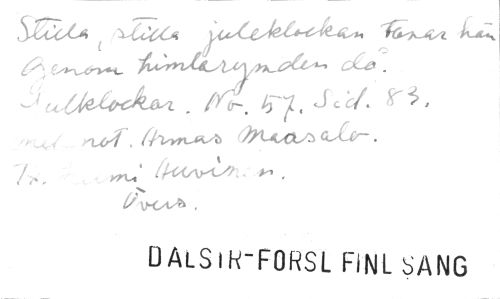 Stilla, stilla juleklockan tonar hän
Genom himlarymden då.
Julklockar. No. 57. Sid. 83.
not. Armas Maasalo.
Huvinen.
Övers.
DALSIR-FORSL FINL SANG